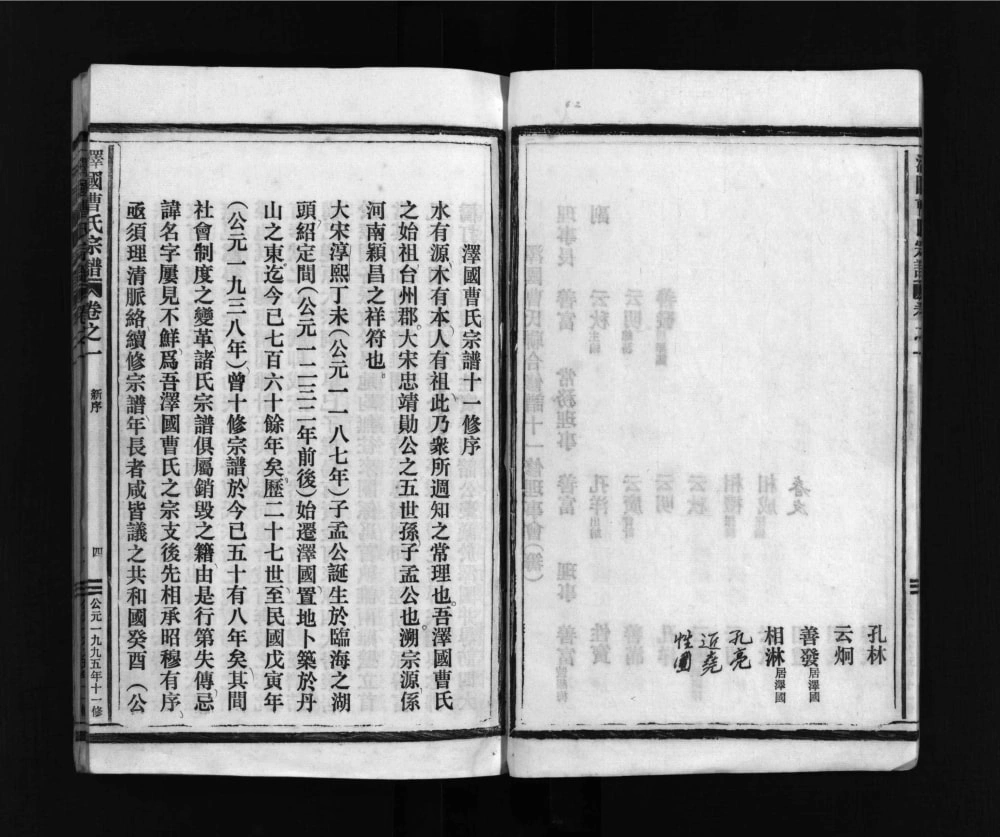 孔林
云炯
善發居澤國
相淋居澤國
孔亮
性圃
澤國曹氏宗譜十一修序
水有源木有本人有祖此乃衆所週知之常理也。吾澤國曹氏
之始祖台州郡。大宋忠靖勛公之五世孫子孟公也。溯宗源係
河南潁昌之祥符也。
大宋淳熙丁未(公元一一八七年)子孟公誕生於臨海之湖
頭紹定間(公元一二三二年前後)始遷澤國置地卜築於丹
山之東迄今已七百六十餘年矣。歷二十七世至民國戊寅年
(公元一九三八年)曾十修宗譜於今已五十有八年矣其間
社會制度之變革諸氏宗譜俱屬銷毀之籍由是行第失傳忌
諱名字屢見不鮮爲吾澤國曹氏之宗支後先相承昭穆有序
亟須理清脈絡續修宗譜年長者咸皆議之共和國癸酉(公
澤國曹氏宗譜 卷之一 新序 四 公元一九九五年十一修